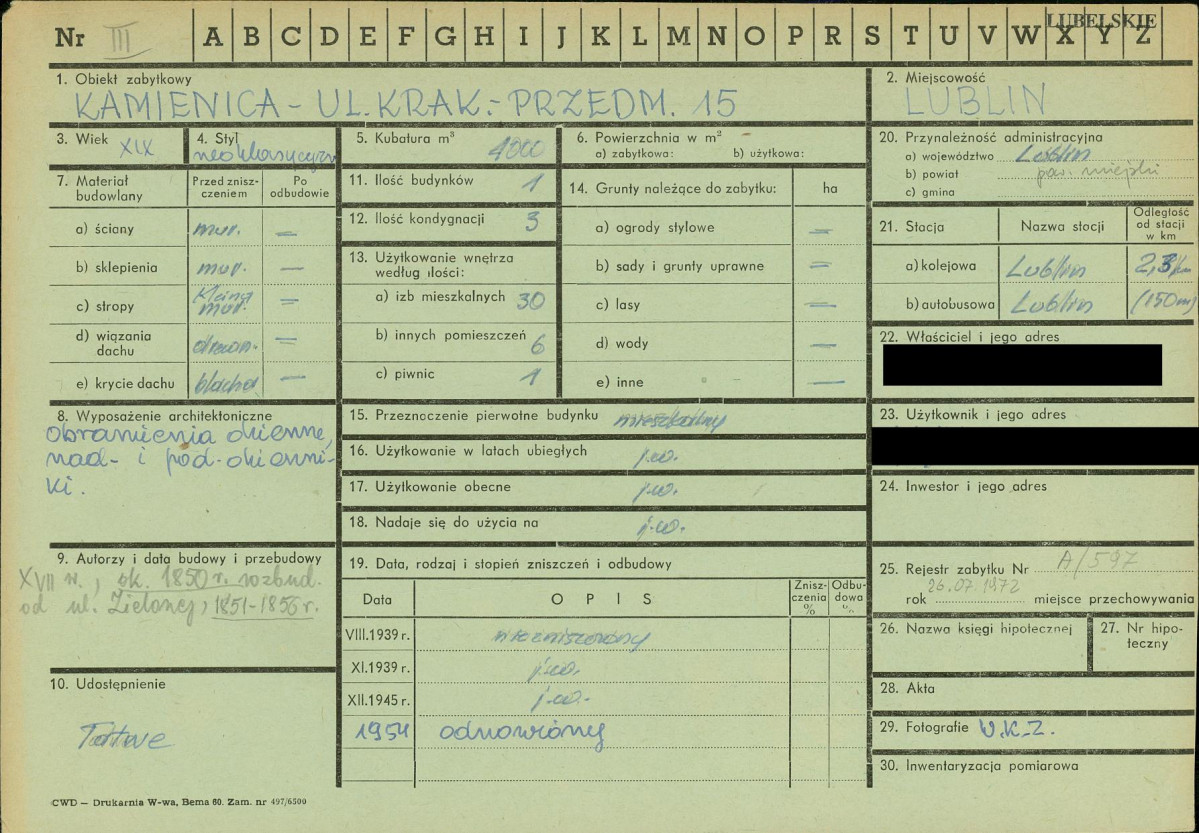 LUBELSKIE
Nr III A B C D E F G H I J K L M N O P R S T U V W X Y Z
1. Obiekt zabytkowy
KAMIENICA - UL. KRAK.- PRZEDM. 15
2. Miejscowość
LUBLIN
3. Wiek XIX
4. Styl
neoklasyczny
5. Kubatura m³ 4000
6. Powierzchnia w m²
a) zabytkowa: b) użytkowa:
7. Materiał budowlany
Przed znisz-
czeniem
Po
odbudowie
a) ściany mur. =
b) sklepienia mur. —
c) stropy Kleina
mur. =
d) wiązania
dachu drewn. =
e) krycie dachu blacha —
8. Wyposażenie architektoniczne
obramienia okienne,
nad- i pod-okienni-
ki.
9. Autorzy i data budowy i przebudowy
XVII w., ok. 1850 r. rozbud.
od ul. Zielonej, 1851-1856 r.
10. Udostępnienie
Łatwe
11. Ilość budynków 1
12. Ilość kondygnacji 3
13. Użytkowanie wnętrza
według ilości:
a) izb mieszkalnych 30
b) innych pomieszczeń 6
c) piwnic 1
14. Grunty należące do zabytku: ha
a) ogrody stylowe =
b) sady i grunty uprawne =
c) lasy =
d) wody —
e) inne —
15. Przeznoczenie pierwotne budynku mieszkalny
16. Użytkowanie w latach ubiegłych j.w.
17. Użytkowanie obecne j.w.
18. Nadaje się do użycia na j.w.
19. Data, rodzaj i stopień zniszczeń i odbudowy
Data OPIS
Znisz-
czenia
%
Odbu-
dowa
%
VIII.1939 r. niezniszczony
XI.1939 r. j.w.
XII.1945 r. j.w.
1954 odnowiony
20. Przynależność administracyjna
a) województwo Lublin
b) powiat pow. miejski
c) gmina
21. Stacja Nazwa stacji
Odległość
od stacji
w km
a) kolejowa Lublin 2,3 km
b) autobusowa Lublin (150 m)
22. Właściciel i jego adres
23. Użytkownik i jego adres
24. Inwestor i jego adres
25. Rejestr zabytku Nr A/597
rok 26.07.1972 miejsce przechowywania
26. Nazwa księgi hipotecznej
27. Nr hipo-
teczny
28. Akta
29. Fotografie W.K.Z.
30. Inwentaryzacja pomiarowa
CWD — Drukarnia W-wa, Bema 60. Zam. nr 497/6500